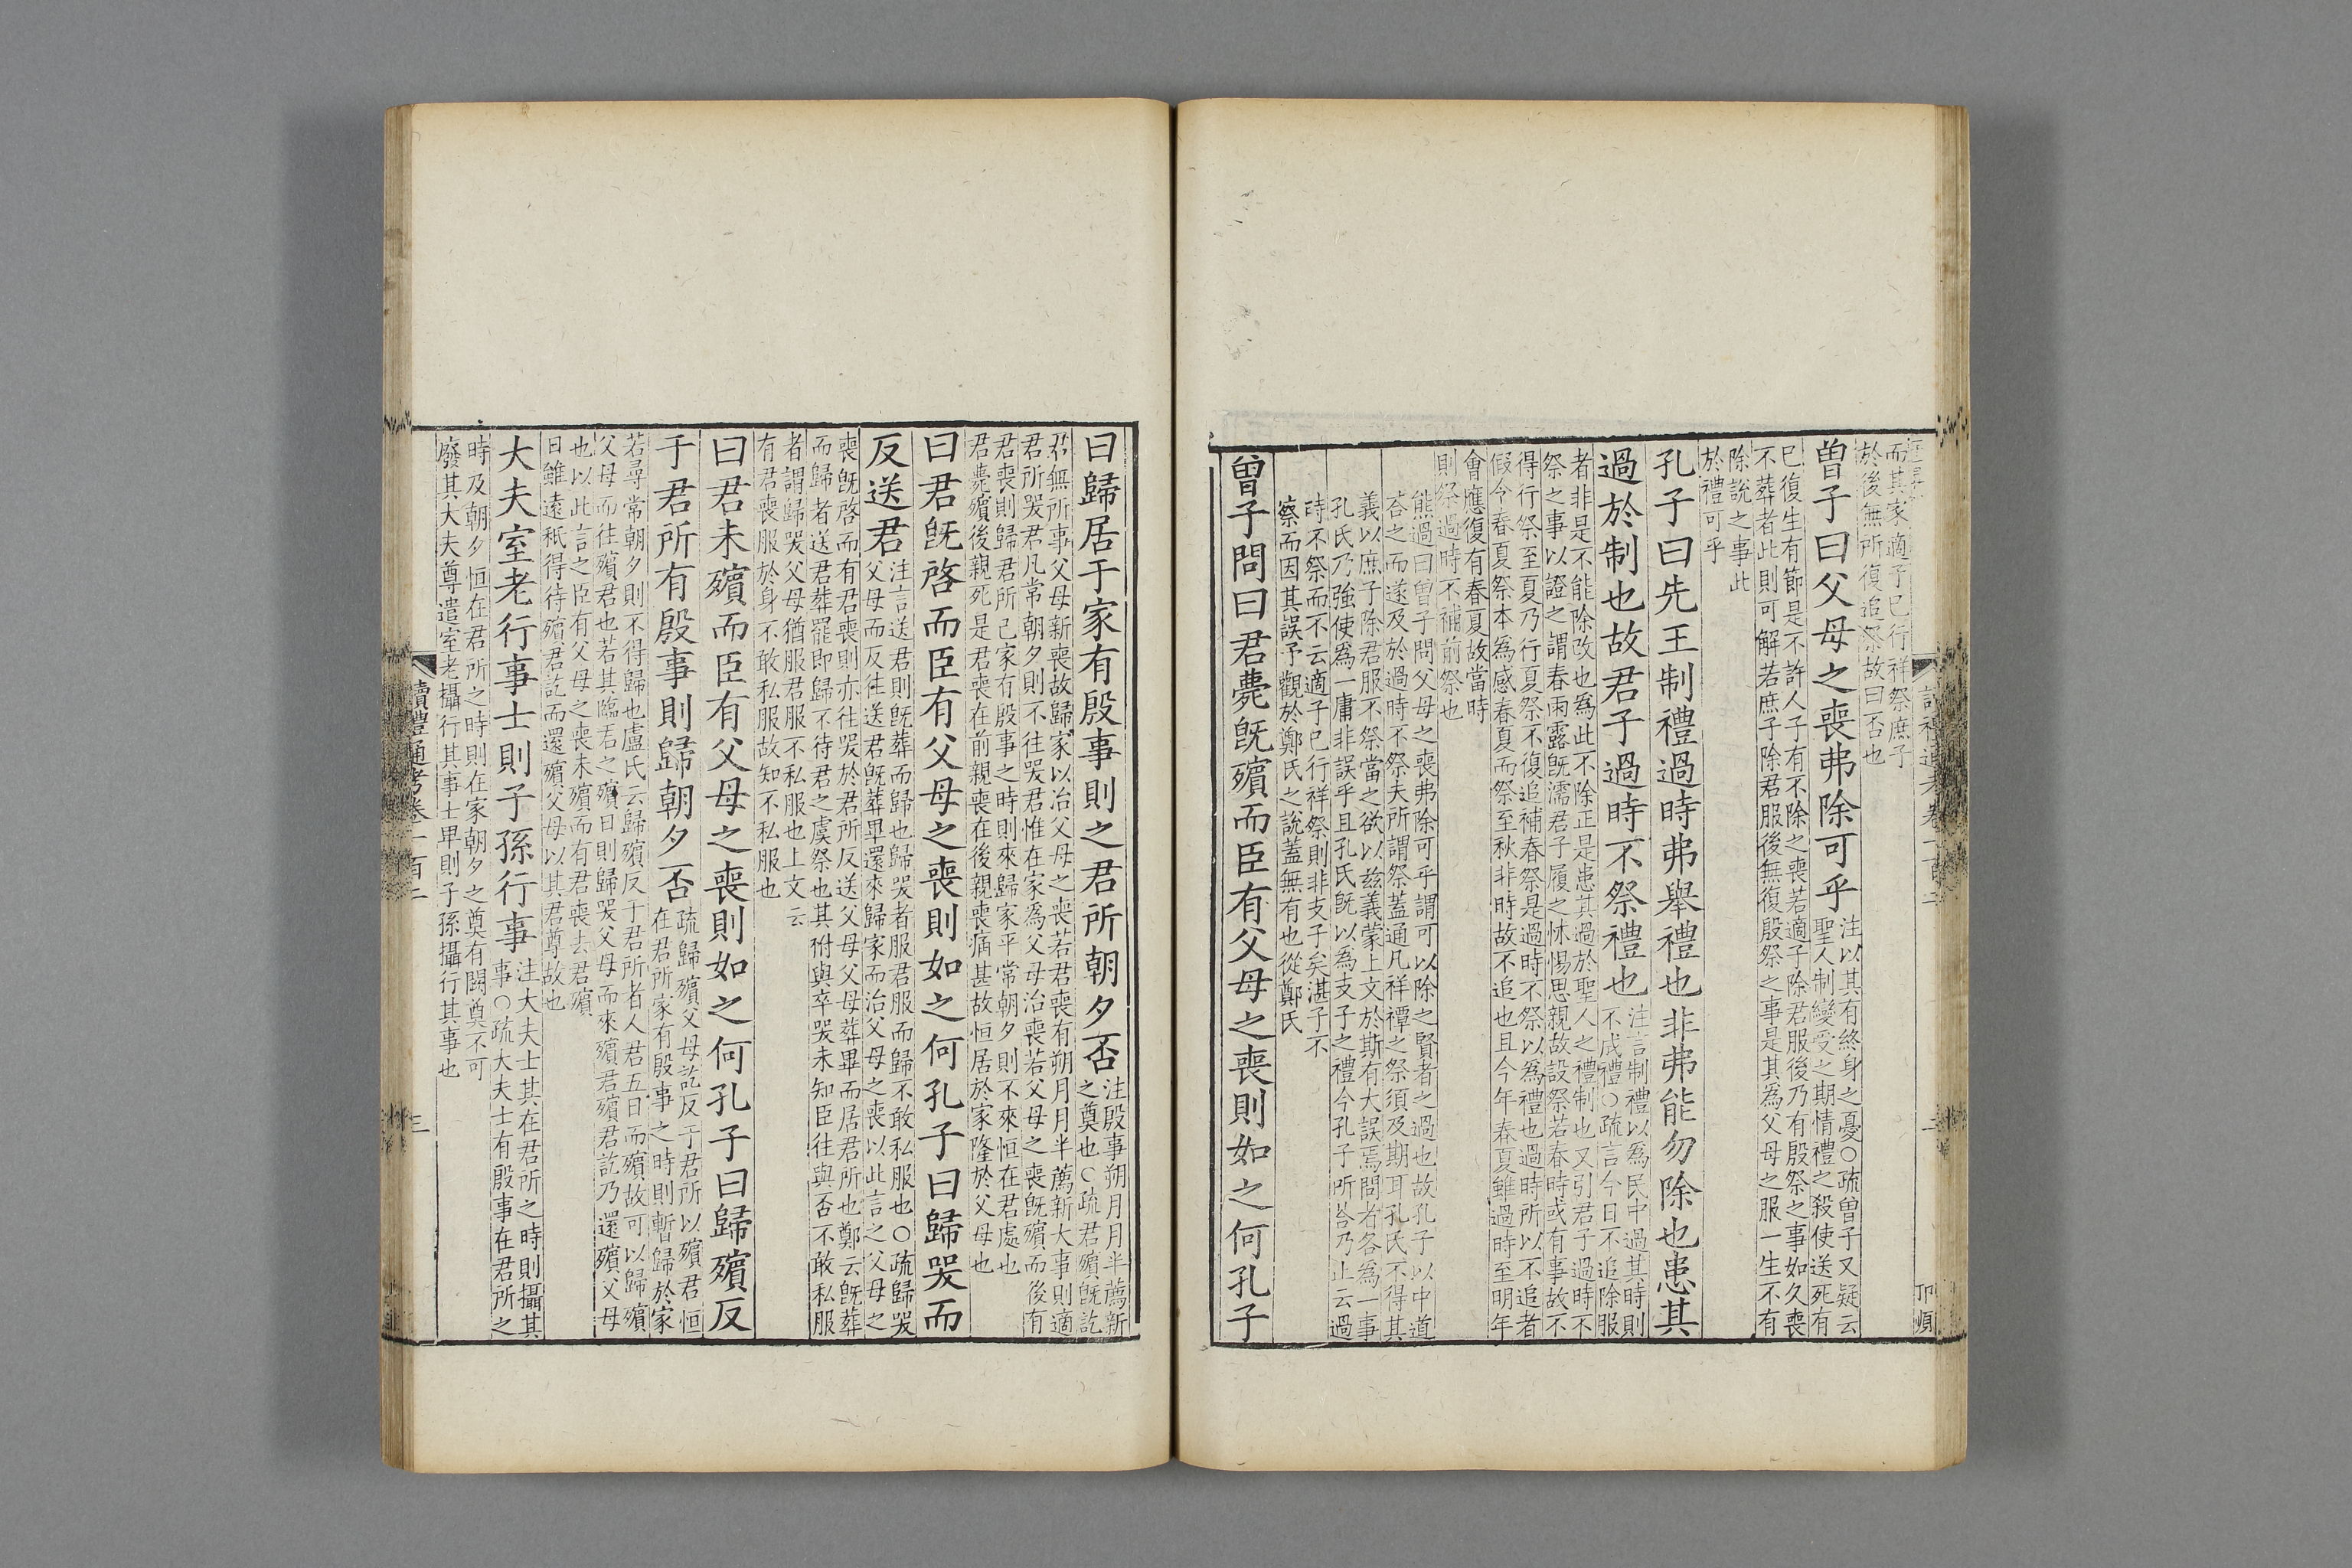 而其家適子已行祥祭庶子
於後無所復追祭故曰否也
曾子曰父母之喪弗除可乎
注以其有終身之憂○疏曾子又疑云
聖人制變受之期情禮之殺使送死有
已復生有節是不許人子有不除之喪若適子除君服後乃有殷祭之事如久喪
不葬者此則可解若庶子除君服後無復殷祭之事是其為父母之服一生不有
除説之事此
於禮可乎
孔子曰先王制禮過時弗舉禮也非弗能勿除也患其
過於制也故君子過時不祭禮也
注言制禮以為民中過其時則
不成禮○疏言今日不追除服
者非是不能除改也為此不除正是患其過於聖人之禮制也又引君子過時不
祭之事以證之謂春雨露既濡君子履之怵惕思親故設祭若春時或有事故不
得行祭至夏乃行夏祭不復追補春祭是過時不祭以為禮也過時所以不追者
假令春夏祭本為感春夏而祭至秋非時故不追也且今年春夏雖過時至明年
會應復有春夏故當時
則祭過時不補前祭也
熊過曰曾子問父母之喪弗除可乎謂可以除之賢者之過也故孔子以中道
荅之而遂及於過時不祭夫所謂祭蓋通凡祥禫之祭須及期耳孔氏不得其
義以庶子除君服不祭當之欲以兹義蒙上文於斯有大誤焉問者各為一事
孔氏乃強使為一庸非誤乎且孔氏既以為支子之禮今孔子所荅乃止云過
時不祭而不云適子已行祥祭則非支子矣湛子不
察而因其誤予觀於鄭氏之說蓋無有也從鄭氏
曾子問曰君薨既殯而臣有父母之喪則如之何孔子
曰歸居于家有殷事則之君所朝夕否
注殷事朔月月半薦新
之奠也○疏君殯既訖
君無所事父母新喪故歸家以治父母之喪若君喪有朔月月半薦新大事則適
君所哭君凡常朝夕則不往哭君惟在家為父母治喪若父母之喪既殯而後有
君喪則歸君所己家有殷事之時則來歸家平常朝夕則不來恒在君處也
君薨殯後親死是君喪在前親喪在後親喪痛甚故恒居於家隆於父母也
曰君既啓而臣有父母之喪則如之何孔子曰歸哭而
反送君
注言送君則既葬而歸也歸哭者服君服而歸不敢私服也○疏歸哭
父母而反往送君既葬畢還來歸家而治父母之喪以此言之父母之
喪既啓而有君喪則亦往哭於君所反送父母父母葬畢而居君所也鄭云既葬
而歸者送君葬罷即歸不待君之虞祭也其祔與卒哭未知臣往與否不敢私服
者謂歸哭父母猶服君服不私服也上文云
有君喪服於身不敢私服故知不私服也
曰君未殯而臣有父母之喪則如之何孔子曰歸殯反
于君所有殷事則歸朝夕否
疏歸殯父母訖反于君所以殯君恒
在君所家有殷事之時則暫歸於家
若尋常朝夕則不得歸也盧氏云歸殯反于君所者人君五日而殯故可以歸殯
父母而往殯君也若其臨君之殯日則歸哭父母而來殯君殯君訖乃還殯父母
也以此言之臣有父母之喪未殯而有君喪去君殯
日雖遠秖得待殯君訖而還殯父母以其君尊故也
大夫室老行事士則子孫行事
注大夫士其在君所之時則攝其
事○疏大夫士有殷事在君所之
時及朝夕恒在君所之時則在家朝夕之奠有闕奠不可
廢其大夫尊遣室老攝行其事士卑則子孫攝行其事也
讀禮通考卷一百二
三